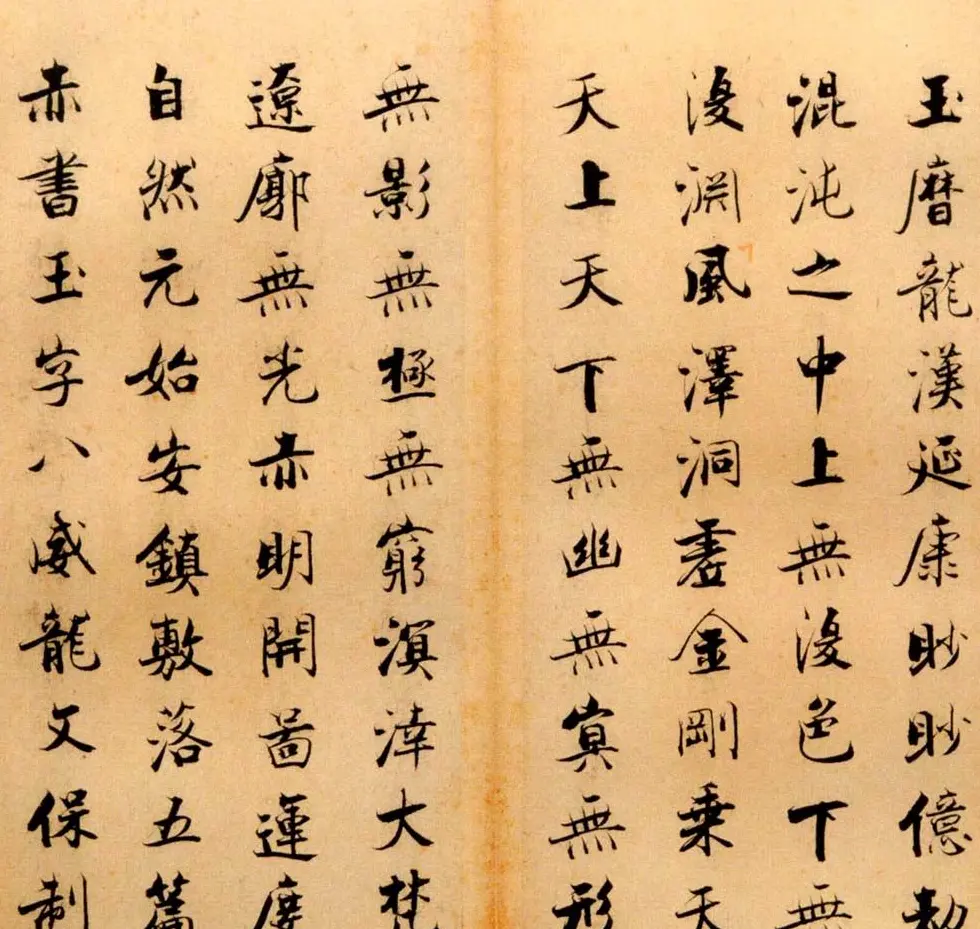 玉曆龍漢延康眇眇億劫
混沌之中上無復色下無
復淵風澤洞虛金剛乘天
天上天下無幽無冥無形
無影無極無窮溟涬大梵
遼廓無光赤明開啚運度
自然元始安鎮敷落五篇
赤書玉字八威龍文保制